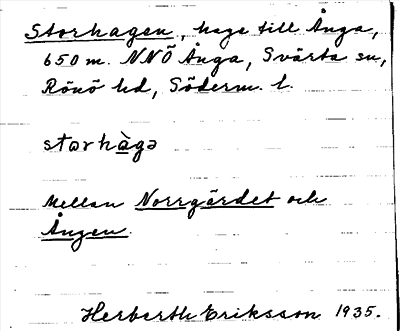 Storhagen, hage till Ånga,
650 m. NNÖ Ånga, Svärta sn,
Rönö hd, Söderm. l.
storhàgə
Mellan Norrgärdet och
Ången.
Herberth Eriksson 1935.